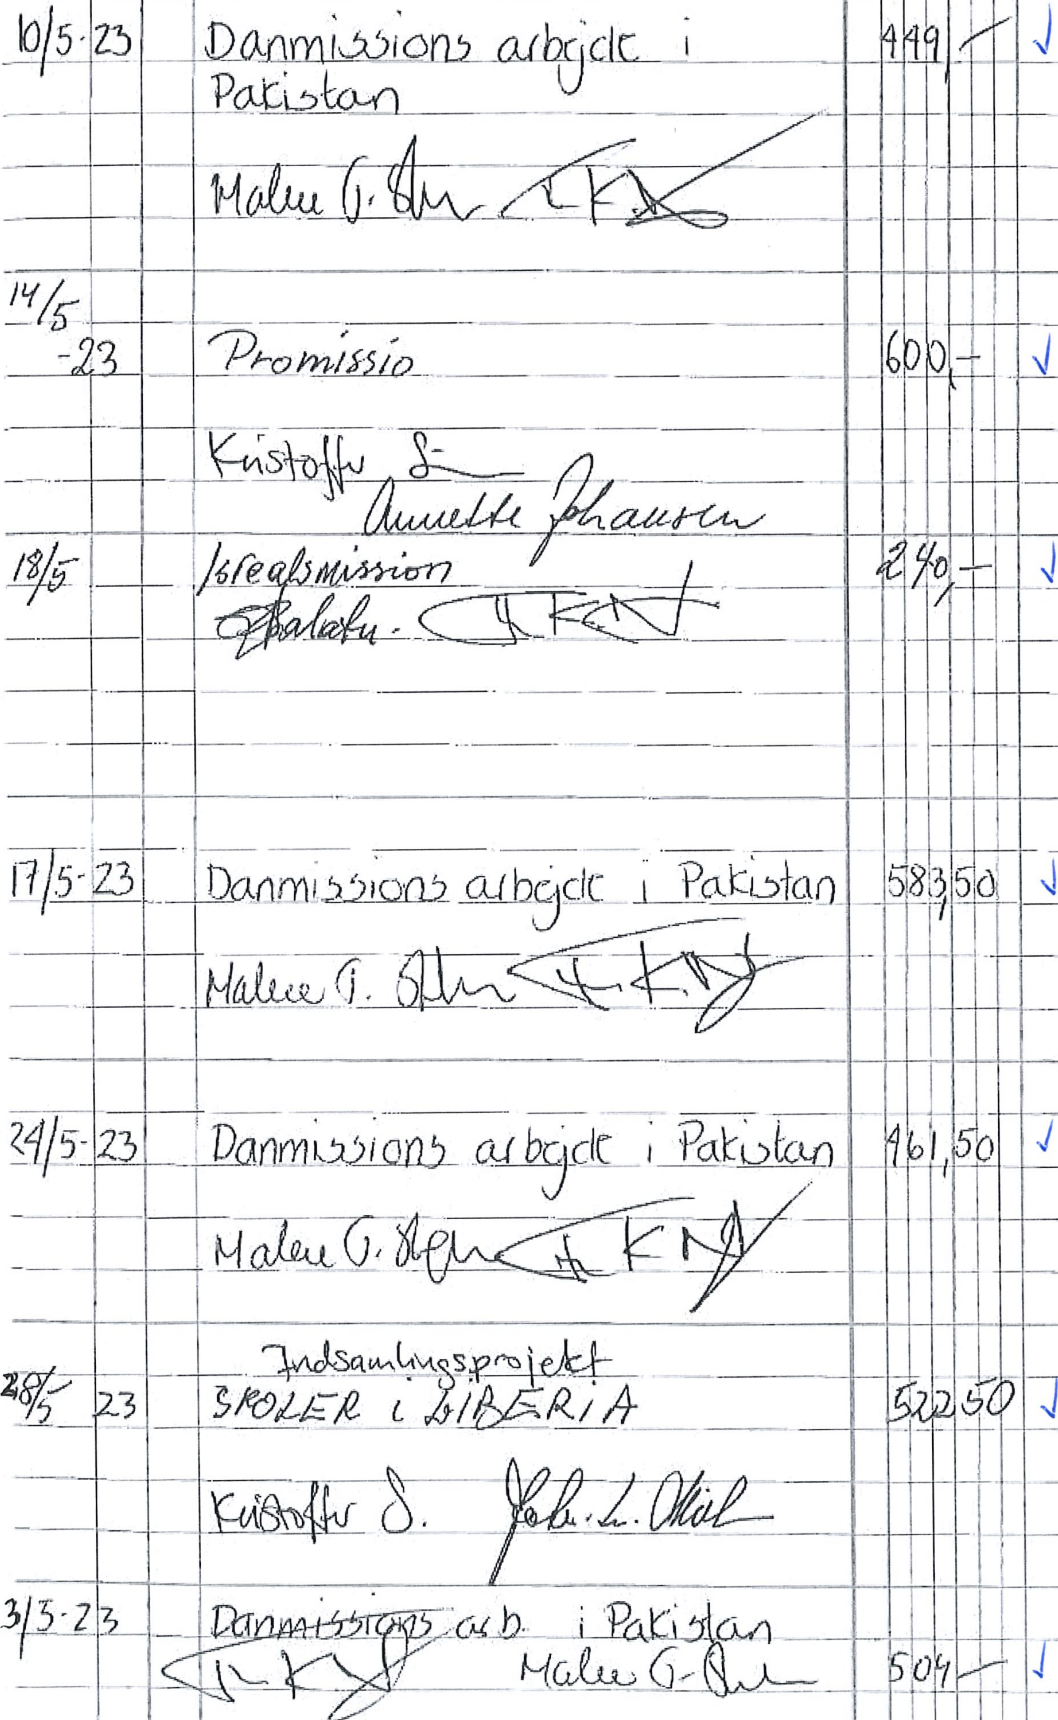 10/5-23 Danmissions arbejde i 449,- ✓
Pakistan
Malene G.
14/5
-23 Promissio 600,- ✓
Kristoffer S
Annette Johansen
18/5 Isrealsmission 240,- ✓
17/5-23 Danmissions arbejde i Pakistan 583,50 ✓
Malene G.
24/5-23 Danmissions arbejde i Pakistan 461,50 ✓
Malene G.
Indsamlingsprojekt
28/5 23 SKOLER i LIBERIA 522,50 ✓
Kristoffer S.
3/5-23 Danmissions arb. i Pakistan
Malene G. 504,- ✓